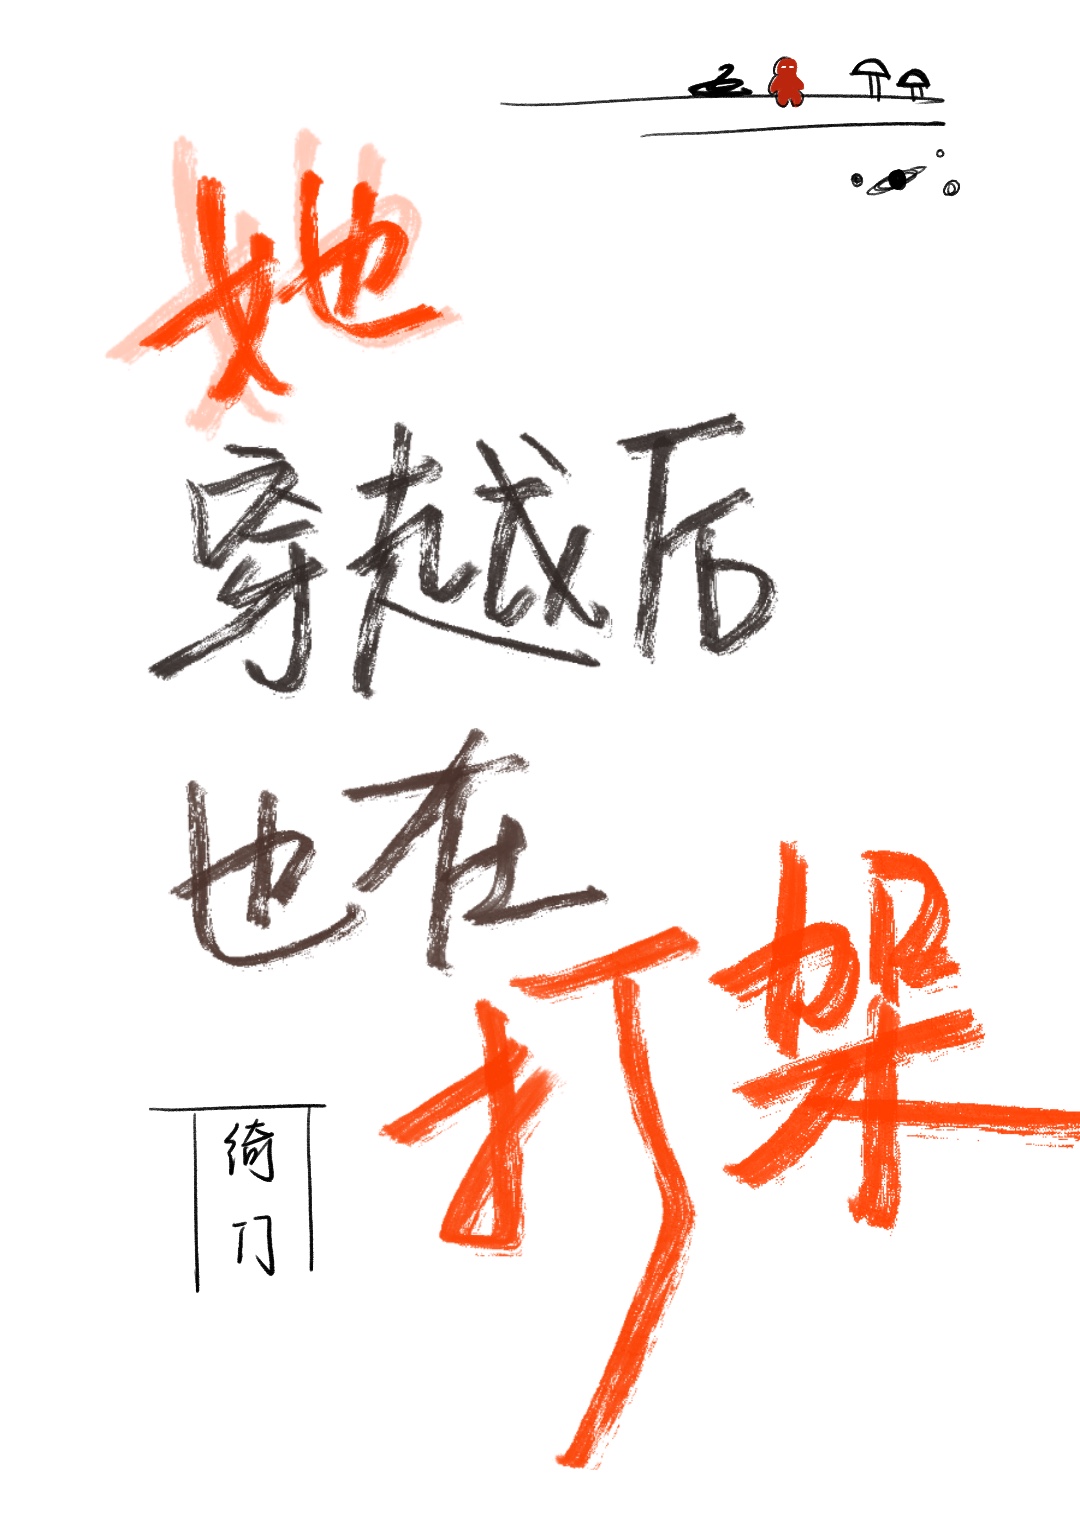 她
穿越后
也在
打架
绮
门